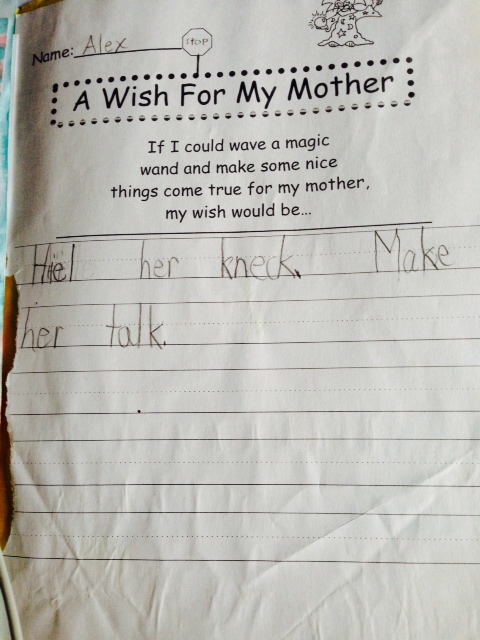 Name: Alex
STOP
A Wish For My Mother
If I could wave a magic
wand and make some nice
things come true for my mother,
my wish would be...
Hiel her kneck. Make
her talk.